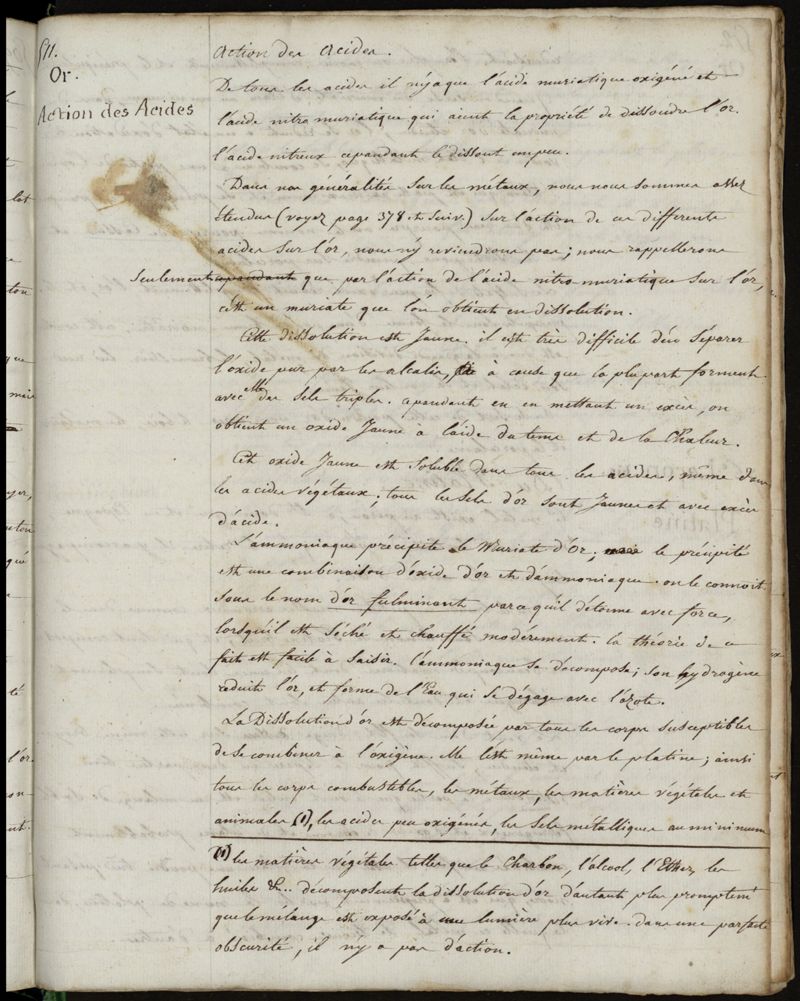 511.
Or.
Action des Acides
Action des Acides.
De tous les acides il n'y a que l'acide muriatique oxigéné et
l'acide nitro muriatique qui aient la propriété de dissoudre l'or.
l'acide nitreux cepandant le dissout un peu.
Dans nos généralités sur les métaux, nous nous sommes assez
étendus (voyez page 378 et suiv.) sur l'action de ces differents
acides sur l'or, nous n'y reviendrons pas; nous rappellerons
seulement cepandant que par l'action de l'acide nitro muriatique sur l'or,
c'est un muriate que l'on obtient en dissolution.
Cette dissolution est Jaune. il est très difficile d'en séparer
l'oxide pur par les alcalis, à cause que la plupart forment
avec elle des sels triples. cepandant en en mettant un excès, on
obtient un oxide Jaune à l'aide du tems et de la Chaleur.
Cet oxide Jaune est soluble dans tous les acides, même dans
les acides végétaux; tous les sels d'or sont Jaunes et avec excès
d'acide.
L'ammoniaque précipite le Muriate d'Or; mais le précipité
est une combinaison d'oxide d'or et d'ammoniaque. on le connoit
sous le nom d'or fulminant parce qu'il détonne avec force,
lorsqu'il est séché et chauffé modérement. la théorie de ce
fait est facile à saisir. l'ammoniaque se décompose; son hydrogène
réduit l'or, et forme de l'Eau qui se dégage avec l'azote.
La Dissolution d'or est décomposée par tous les corps susceptibles
de se combiner à l'oxigène. Elle l'est même par le platine; ainsi
tous les corps combustibles, les métaux, les matières végétales et
animales (1), les acides peu oxigénés, les sels métalliques au minimum
(1) les matières végétales telles que le Charbon, l'alcool, l'Ether, les
huiles &c.. décomposent la dissolution d'or d'autant plus promptemt
que le mélange est exposé à une lumière plus vive. dans une parfaite
obscurité, il n'y a pas d'action.